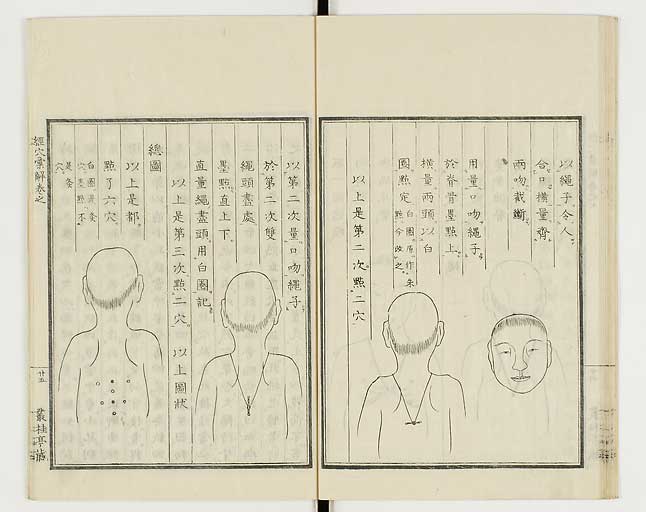 以繩子令人
合口橫量齊
兩吻截斷
用量口吻繩子
於脊骨墨點上
橫量兩頭以白
圈點定
白圈原作朱
點今改之
以上是第二次點二穴
以第二次量口吻繩子
於第二次雙
繩頭盡處
墨點直上下
直量繩盡頭用白圈記
以上是第三次點二穴 以上圖狀
總圖
以上是都
點了六穴
白圈是灸
穴墨點不
是灸
穴
經穴彙解卷之
廿五
叢桂亭藏